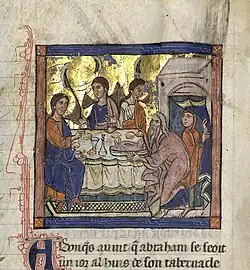 Donqes auint q̃ abraham se seoit
un ior al huis de son tabernacle